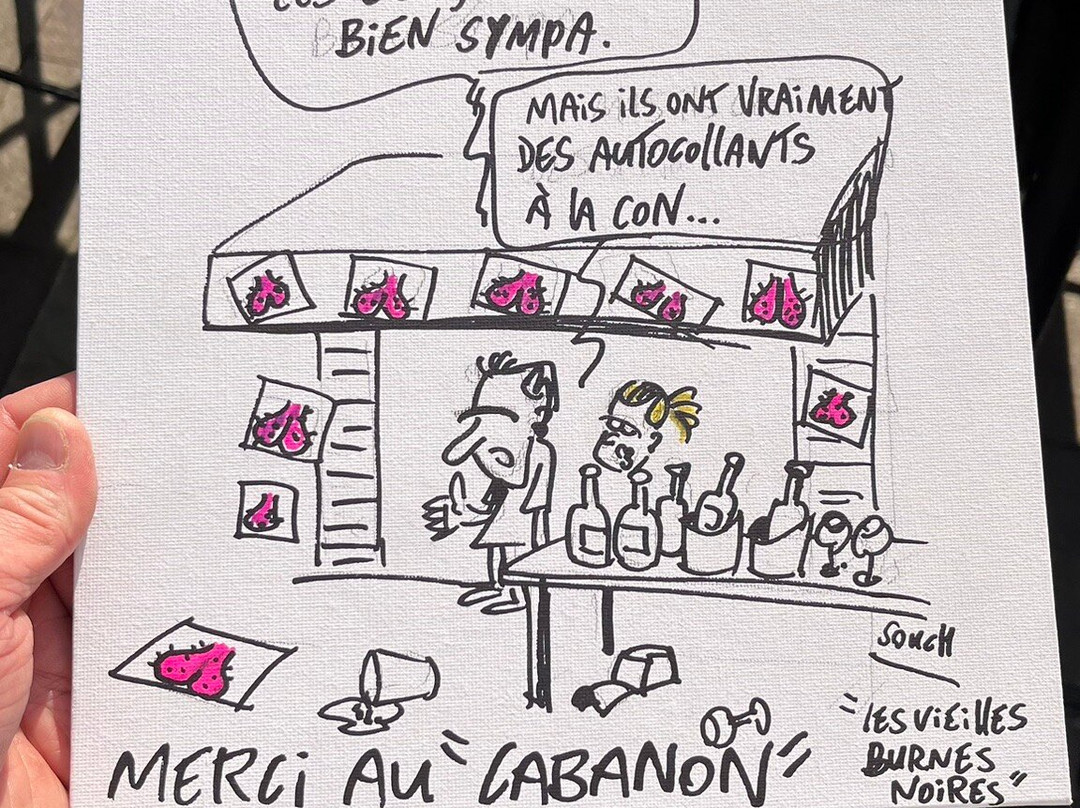 BiEN SYMPA.
MAiS iLS ONT VRAiMENT
DES AUTOCOllANTS
À lA CON...
SOUCH
"lES ViEillES
BURNES
NOiRES"
MERCi AU "CABANON"